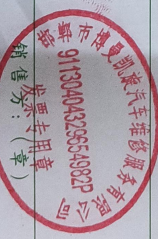 邯郸市博曼凯聚汽车维修服务有限公司
91130404329654982P
发票专用章
销售方：（章）